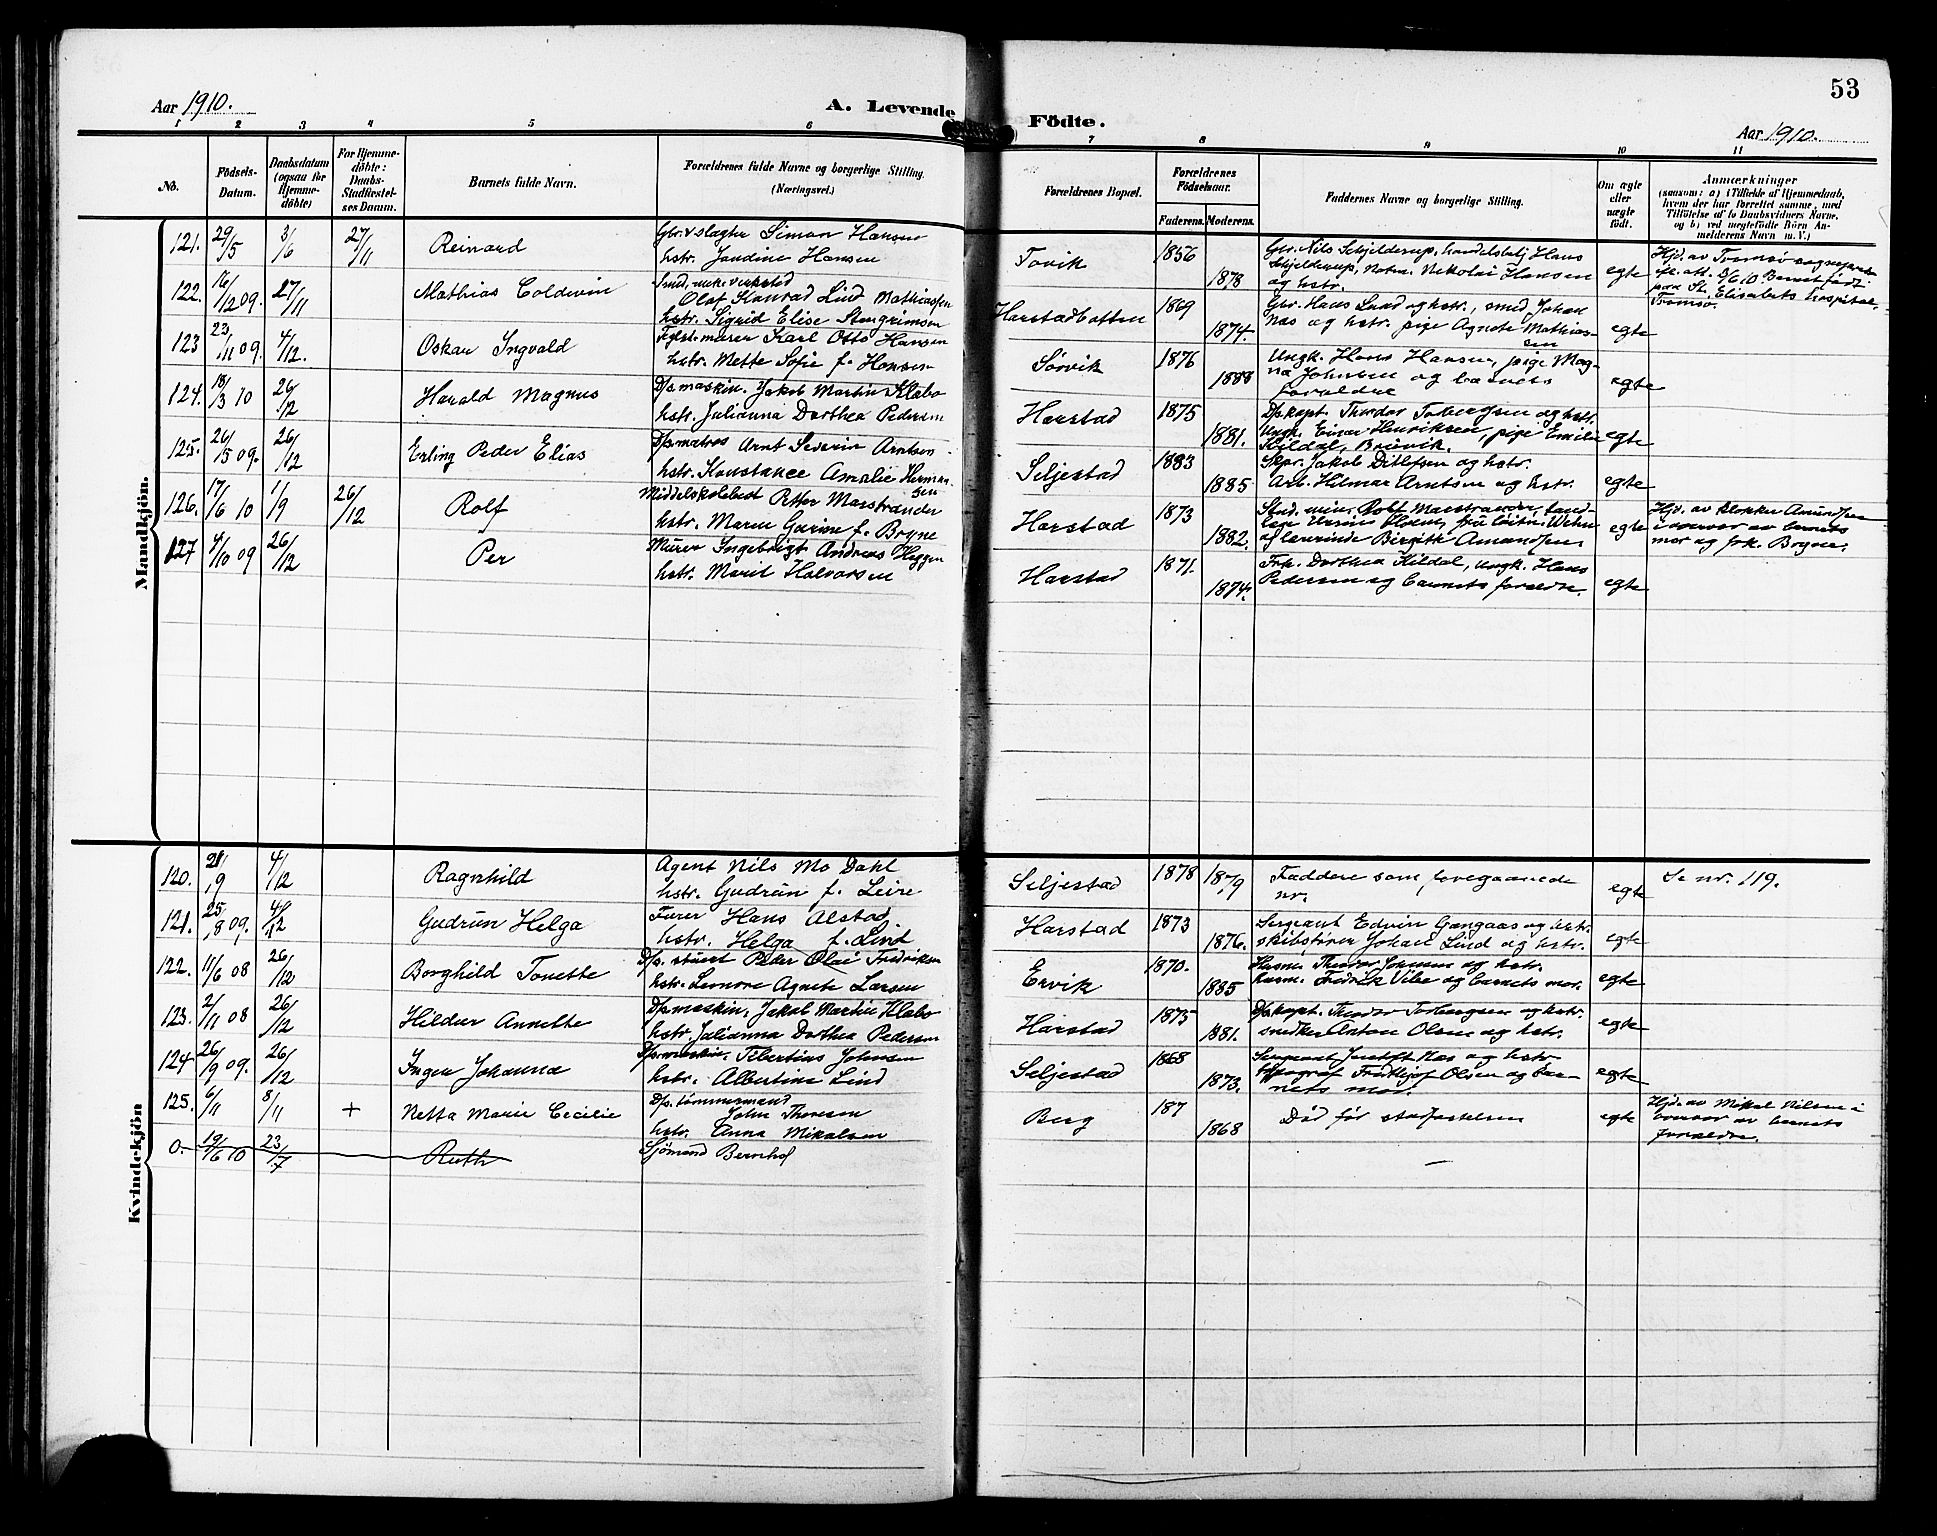 53
Aar 1910.
A. Levende Födte.
Aar 1910.
1 2 3 4 5 6 7 8 9 10 11
No.
Födsels-Datum.
Daabsdatum (ogsaa för Hjemme-döbte)
For Hjemme-döbte: Daabs-Stadfæstel-ses Datum.
Barnets fulde Navn.
Forældrenes fulde Navne og borgerlige Stilling.
(Næringsvei.)
Forældrenes Bopæl.
Forældrenes Födselsaar.
Faderens. Moderens.
Faddernes Navne og borgerlige Stilling.
Om ægte eller uægte födt.
Anmærkninger
(saasom: a) i Tilfælde af Hjemmedaab,
hvem der har forrettet samme, med
Tilföielse af to Daabsvidners Navne,
og b) ved uægtefödte Börn An-
melderens Navn m. V.)
Mandkjön.
121. 29/5 3/6 27/11 Reinard
Gbr. & slagter Simon Hansen
hstr. Jandine Hansen
Tovik 1856 1878
Gbr. Nils Schjelderup, handelsbetj Hans
Schjelderup, Nikolai Hansen
og hstr.
egte
Hjd. av Tromsø sogneprest
Barnet født
paa St. Elisabets hospital
Tromsø
122. 16/12 09. 27/11 Mathias Coldevin
Olaf Konrad Lind Mathiassen
hstr. Sigrid Elise Stengrimsen
Harstadbotten 1869 1874.
Gbr. Hans Lund og hstr., smed Johan
Næs og hstr. pige Agnete Mathias-
sen
egte
123 23/11 09. 4/12. Oskar Ingvald
murer Karl Otto Hansen
hstr. Mette Sofie f. Hansen
Sørvik 1876 1888
Ungk. Hans Hansen, pige Mag-
na Johnsen og barnets
forældre
egte
124. 18/3 10 26/12 Harald Magnus
D/s maskin. Jakob Martin Klabo
hstr. Julianna Dorthea Pedersen
Harstad 1875 1881.
D/s kapt. Theodor Torbergsen og hstr.
Ungk. Einar Henriksen, pige Emilie
Kildal, Brüvik.
egte
125. 26/5 09. 26/12 Erling Peder Elias
D/s matros Arnt Severin Arntsen
hstr. Konstance Amalie Herman-
sen
Seljestad 1883 1885
Skpr. Jakob Ditlefsen og hstr.
Arb. Hilmar Arntsen og hstr.
egte
126. 17/6 10 1/9 26/12 Rolf
Middelskolebest Petter Marstrander
hstr. Maren Gurine f. Bogne
Harstad 1873 1882.
Rolf Marstrander, tand-
læge
lærerinde Birgitte Amundsen
egte
Hjd. av klokker Amundsen
i nærvær av barnets
mor og frk. Bogne.
127 4/10 09 26/12 Per
Murer Ingebrigt Andreas Heggen
hstr. Marit Halvorsen
Harstad 1871. 1874.
Frk. Dorthea Kildal, ungk. Hans
Pedersen og barnets forældre.
egte
Kvindekjön
120. 21/9 4/12 Ragnhild
Agent Nils Mo Dahl
hstr. Gudrun f. Leire
Seljestad 1878 1879
Faddere som foregaaende
nr.
egte
Se nr. 119.
121. 25/8 09. 4/12 Gudrun Helga
Furer Hans Alstad,
hstr. Helga f. Lind
Harstad 1873 1876.
Sergeant Edvin Gangaas og hstr.
skibsfører Johan Lind og hstr.
egte
122. 11/6 08 26/12 Borghild Tonette
D/s. stuert Peder Olai Fredriksen
hstr. Lenore Agnete Larsen
Ervik 1870. 1885
Husm. Theodor Johnsen og hstr.
husm. Fredrik Vibe og barnets mor.
egte
123. 2/11 08 26/12 Hildur Annette
D/s maskin. Jakob Martin Klabo
hstr. Julianna Dorthea Pedersen
Harstad 1875 1881.
D/s kapt. Theodor Torbergsen og hstr.
snedker Anton Olsen og hstr.
egte
124 26/9 09. 26/12 Inger Johanne
D/s maskin. Tibertius Johnsen
hstr. Albertine Lind
Seljestad 1868 1873.
Sergeant Næs og hstr
typograf Fridthjof Olsen og bar-
nets mor.
egte
125. 6/11 8/11 + Netta Marie Cecilie
D/s. tømmermand
John Thoresen
hstr. Anna Mikalsen
Berg 187 1868
Død før stadfæstelsen
egte
Hjd. av Mikal Nilsen i
nærvær av barnets
forældre.
0. 19/6 10 23/7 Ruth
Sjømand Bernhof